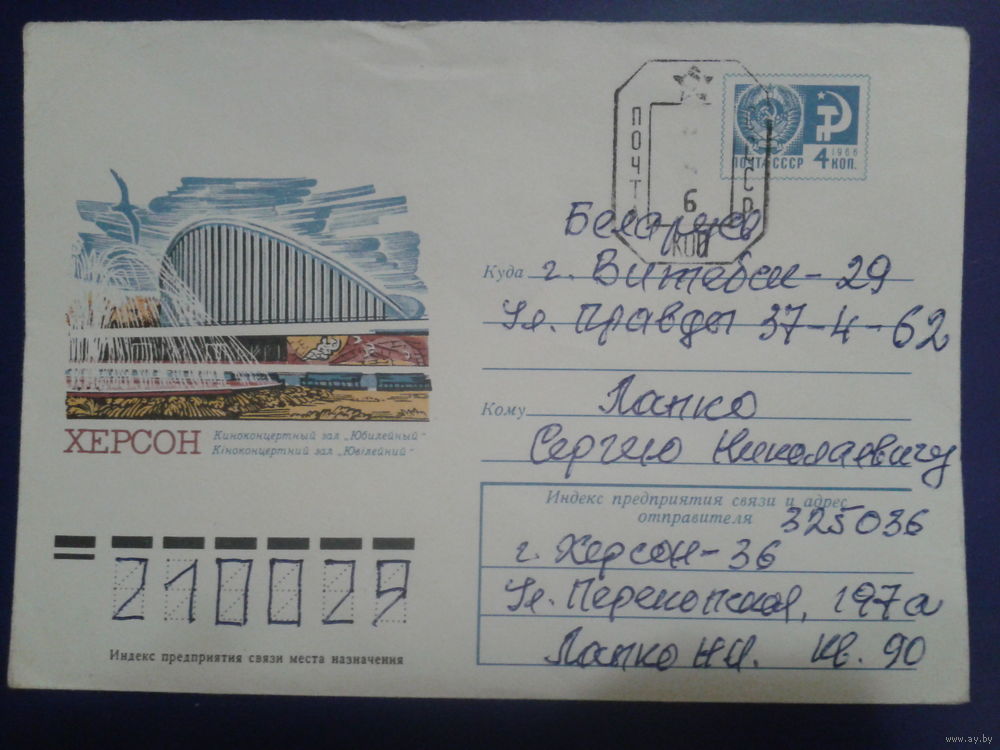 ПОЧТА СССР
6
КОП
ПОЧТА СССР 4 1966 КОП.
Беларусь
Куда г. Витебск-29
ул. Правды 37-4-62
Кому Лапко
Сергею Николаевичу
ХЕРСОН
Киноконцертный зал „Юбилейный“
Кіноконцертний зал „Ювілейний“
Индекс предприятия связи и адрес
отправителя 325036
г. Херсон-36
ул. Перекопская, 197а
Лапко Н.И. кв. 90
210029
Индекс предприятия связи места назначения
www.ay.by